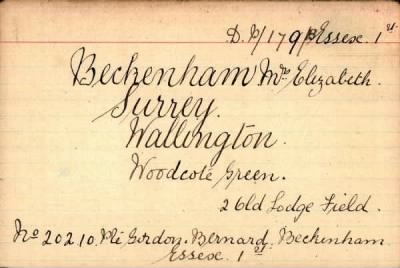 D.P/179/Essex. 1st
Beckenham Mrs Elizabeth.
Surrey.
Wallington.
Woodcote Green.
2 Old Lodge Field.
No 20210. Pte Gordon. Bernard. Beckinham.
Essex. 1st